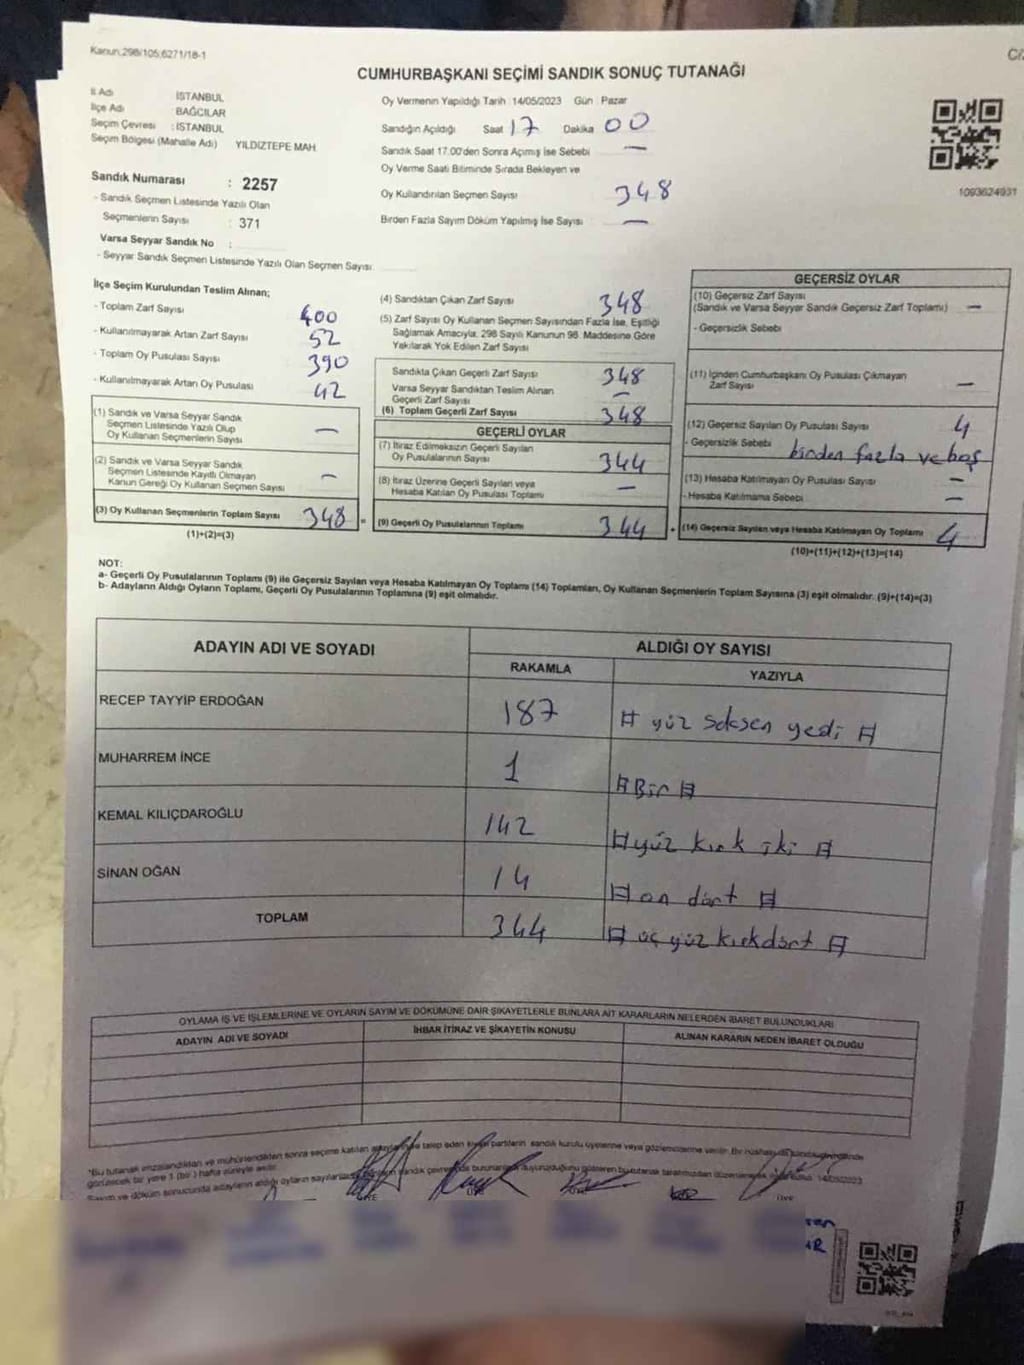 Kanun:298/105;6271/18-1
CUMHURBAŞKANI SEÇİMİ SANDIK SONUÇ TUTANAĞI
İl Adı İSTANBUL
İlçe Adı BAĞCILAR
Seçim Çevresi : İSTANBUL
Seçim Bölgesi (Mahalle Adı) YILDIZTEPE MAH.
Sandık Numarası : 2257
- Sandık Seçmen Listesinde Yazılı Olan
Seçmenlerin Sayısı : 371
Varsa Seyyar Sandık No :
- Seyyar Sandık Seçmen Listesinde Yazılı Olan Seçmen Sayısı
Oy Vermenin Yapıldığı Tarih : 14/05/2023 Gün : Pazar
Sandığın Açıldığı Saat 17 Dakika 00
Sandık Saat 17.00'den Sonra Açımış İse Sebebi —
Oy Verme Saati Bitiminde Sırada Bekleyen ve
Oy Kullandırılan Seçmen Sayısı 348
Birden Fazla Sayım Döküm Yapılmış İse Sayısı —
1093624931
İlçe Seçim Kurulundan Teslim Alınan;
- Toplam Zarf Sayısı 400
- Kullanılmayarak Artan Zarf Sayısı 52
- Toplam Oy Pusulası Sayısı 390
- Kullanılmayarak Artan Oy Pusulası 42
(1) Sandık ve Varsa Seyyar Sandık
Seçmen Listesinde Yazılı Olup
Oy Kullanan Seçmenlerin Sayısı —
(2) Sandık ve Varsa Seyyar Sandık
Seçmen Listesinde Kayıtlı Olmayan
Kanun Gereği Oy Kullanan Seçmen Sayısı —
(3) Oy Kullanan Seçmenlerin Toplam Sayısı 348 =
(1)+(2)=(3)
(4) Sandıktan Çıkan Zarf Sayısı 348
(5) Zarf Sayısı Oy Kullanan Seçmen Sayısından Fazla İse, Eşitliği
Sağlamak Amacıyla; 298 Sayılı Kanunun 98. Maddesine Göre
Yakılarak Yok Edilen Zarf Sayısı
Sandıkta Çıkan Geçerli Zarf Sayısı 348
Varsa Seyyar Sandıktan Teslim Alınan
Geçerli Zarf Sayısı —
(6) Toplam Geçerli Zarf Sayısı 348
GEÇERLİ OYLAR
(7) İtiraz Edilmeksizin Geçerli Sayılan
Oy Pusulalarının Sayısı 344
(8) İtiraz Üzerine Geçerli Sayılan veya
Hesaba Katılan Oy Pusulası Toplamı —
(9) Geçerli Oy Pusulalarının Toplamı 344 +
GEÇERSİZ OYLAR
(10) Geçersiz Zarf Sayısı
(Sandık ve Varsa Seyyar Sandık Geçersiz Zarf Toplamı) —
- Geçersizlik Sebebi
(11) İçinden Cumhurbaşkanı Oy Pusulası Çıkmayan
Zarf Sayısı —
(12) Geçersiz Sayılan Oy Pusulası Sayısı 4
- Geçersizlik Sebebi birden fazla ve boş
(13) Hesaba Katılmayan Oy Pusulası Sayısı —
- Hesaba Katılmama Sebebi —
(14) Geçersiz Sayılan veya Hesaba Katılmayan Oy Toplamı 4
(10)+(11)+(12)+(13)=(14)
NOT:
a- Geçerli Oy Pusulalarının Toplamı (9) ile Geçersiz Sayılan veya Hesaba Katılmayan Oy Toplamı (14) Toplamları, Oy Kullanan Seçmenlerin Toplam Sayısına (3) eşit olmalıdır. (9)+(14)=(3)
b- Adayların Aldığı Oyların Toplamı, Geçerli Oy Pusulalarının Toplamına (9) eşit olmalıdır.
ADAYIN ADI VE SOYADI ALDIĞI OY SAYISI
RAKAMLA YAZIYLA
RECEP TAYYİP ERDOĞAN 187 # yüz seksen yedi #
MUHARREM İNCE 1 # Bir #
KEMAL KILIÇDAROĞLU 142 # yüz kırk iki #
SİNAN OĞAN 14 # on dört #
TOPLAM 344 # üç yüz kırkdört #
OYLAMA İŞ VE İŞLEMLERİNE VE OYLARIN SAYIM VE DÖKÜMÜNE DAİR ŞİKAYETLERLE BUNLARA AİT KARARLARIN NELERDEN İBARET BULUNDUKLARI
ADAYIN ADI VE SOYADI İHBAR İTİRAZ VE ŞİKAYETİN KONUSU ALINAN KARARIN NEDEN İBARET OLDUĞU
*Bu tutanak imzalandıktan ve mühürlendikten sonra seçime katılan talep eden partilerin sandık kurulu üyelerine veya gözlemcilerine verilir. Bir nüshası da
görülecek bir yere 1 (bir) hafta süreyle asılır.
Sayım ve döküm sonucunda adayların aldığı oyların 14/05/2023
ÜYE